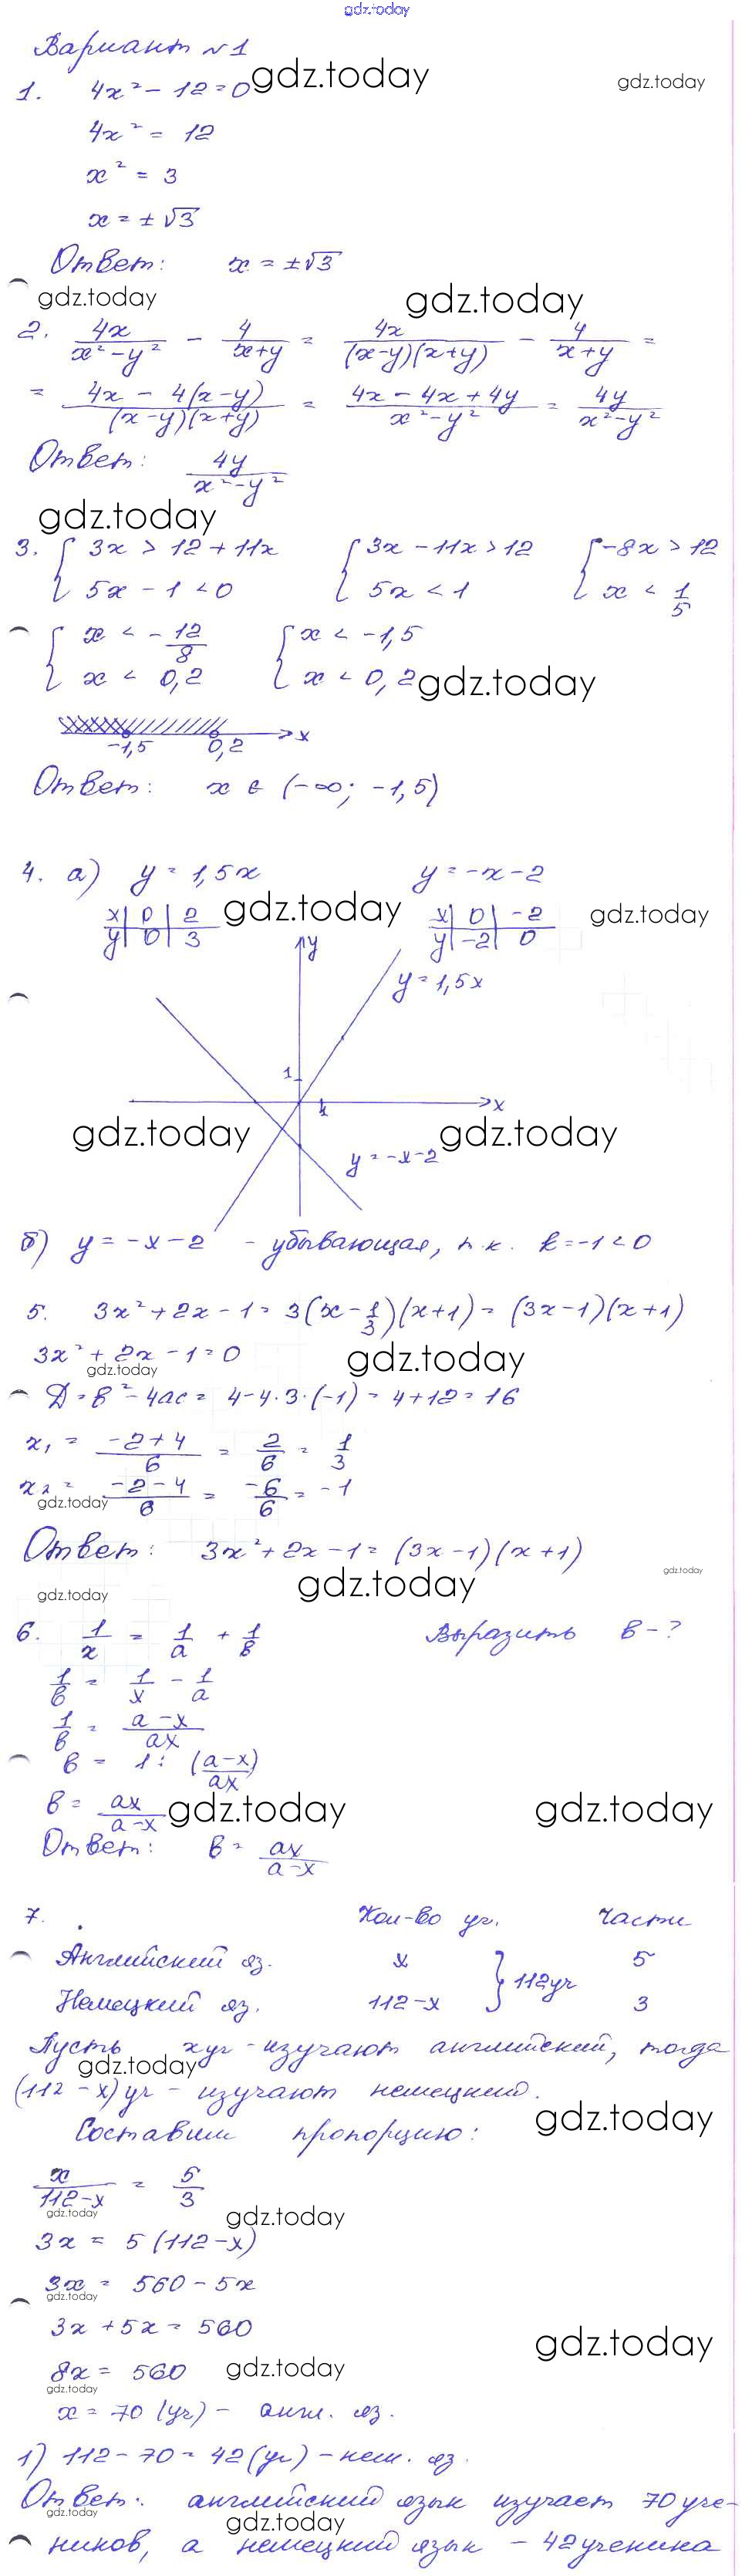 gdz.today
Вариант №1
1. 4x² - 12 = 0 gdz.today gdz.today
4x² = 12
x² = 3
x = ±√3
Ответ: x = ±√3
gdz.today gdz.today
2. 4x/(x²-y²) - 4/(x+y) = 4x/((x-y)(x+y)) - 4/(x+y) =
= (4x - 4(x-y))/((x-y)(x+y)) = (4x - 4x + 4y)/(x²-y²) = 4y/(x²-y²)
Ответ: 4y/(x²-y²)
gdz.today
3. { 3x > 12 + 11x { 3x - 11x > 12 { -8x > 12
{ 5x - 1 < 0 { 5x < 1 { x < 1/5
{ x < -12/8 { x < -1,5
{ x < 0,2 { x < 0,2 gdz.today
-1,5 0,2 x
Ответ: x ∈ (-∞; -1,5)
4. а) y = 1,5x y = -x - 2
x | 0 | 2 gdz.today x | 0 | -2 gdz.today
y | 0 | 3 y | -2 | 0
y
y = 1,5x
1
1 x
gdz.today gdz.today
y = -x-2
б) y = -x-2 - убывающая, т.к. k = -1 < 0
5. 3x² + 2x - 1 = 3(x - 1/3)(x+1) = (3x-1)(x+1)
3x² + 2x - 1 = 0 gdz.today
gdz.today
Д = в² - 4ас = 4-4·3·(-1) = 4+12 = 16
x₁ = (-2+4)/6 = 2/6 = 1/3
x₂ = (-2-4)/6 = -6/6 = -1
gdz.today
Ответ: 3x² + 2x - 1 = (3x-1)(x+1)
gdz.today gdz.today
gdz.today
6. 1/x = 1/a + 1/в Выразить в - ?
1/в = 1/x - 1/a
1/в = (a-x)/ax
в = 1 : ((a-x)/ax)
в = ax/(a-x) gdz.today gdz.today
Ответ: в = ax/(a-x)
7. Кол-во уч. Части
Английский яз. x } 112 уч 5
Немецкий яз. 112-x 3
Пусть x уч - изучают английский, тогда
gdz.today
(112-x) уч - изучают немецкий.
gdz.today
Составим пропорцию:
x/(112-x) = 5/3
gdz.today gdz.today
3x = 5(112-x)
3x = 560 - 5x
gdz.today
3x + 5x = 560
gdz.today
8x = 560 gdz.today
gdz.today
x = 70 (уч) - англ. яз.
1) 112 - 70 = 42 (уч) - нем. яз.
Ответ: английский язык изучает 70 уче-
gdz.today gdz.today
ников, а немецкий язык - 42 ученика